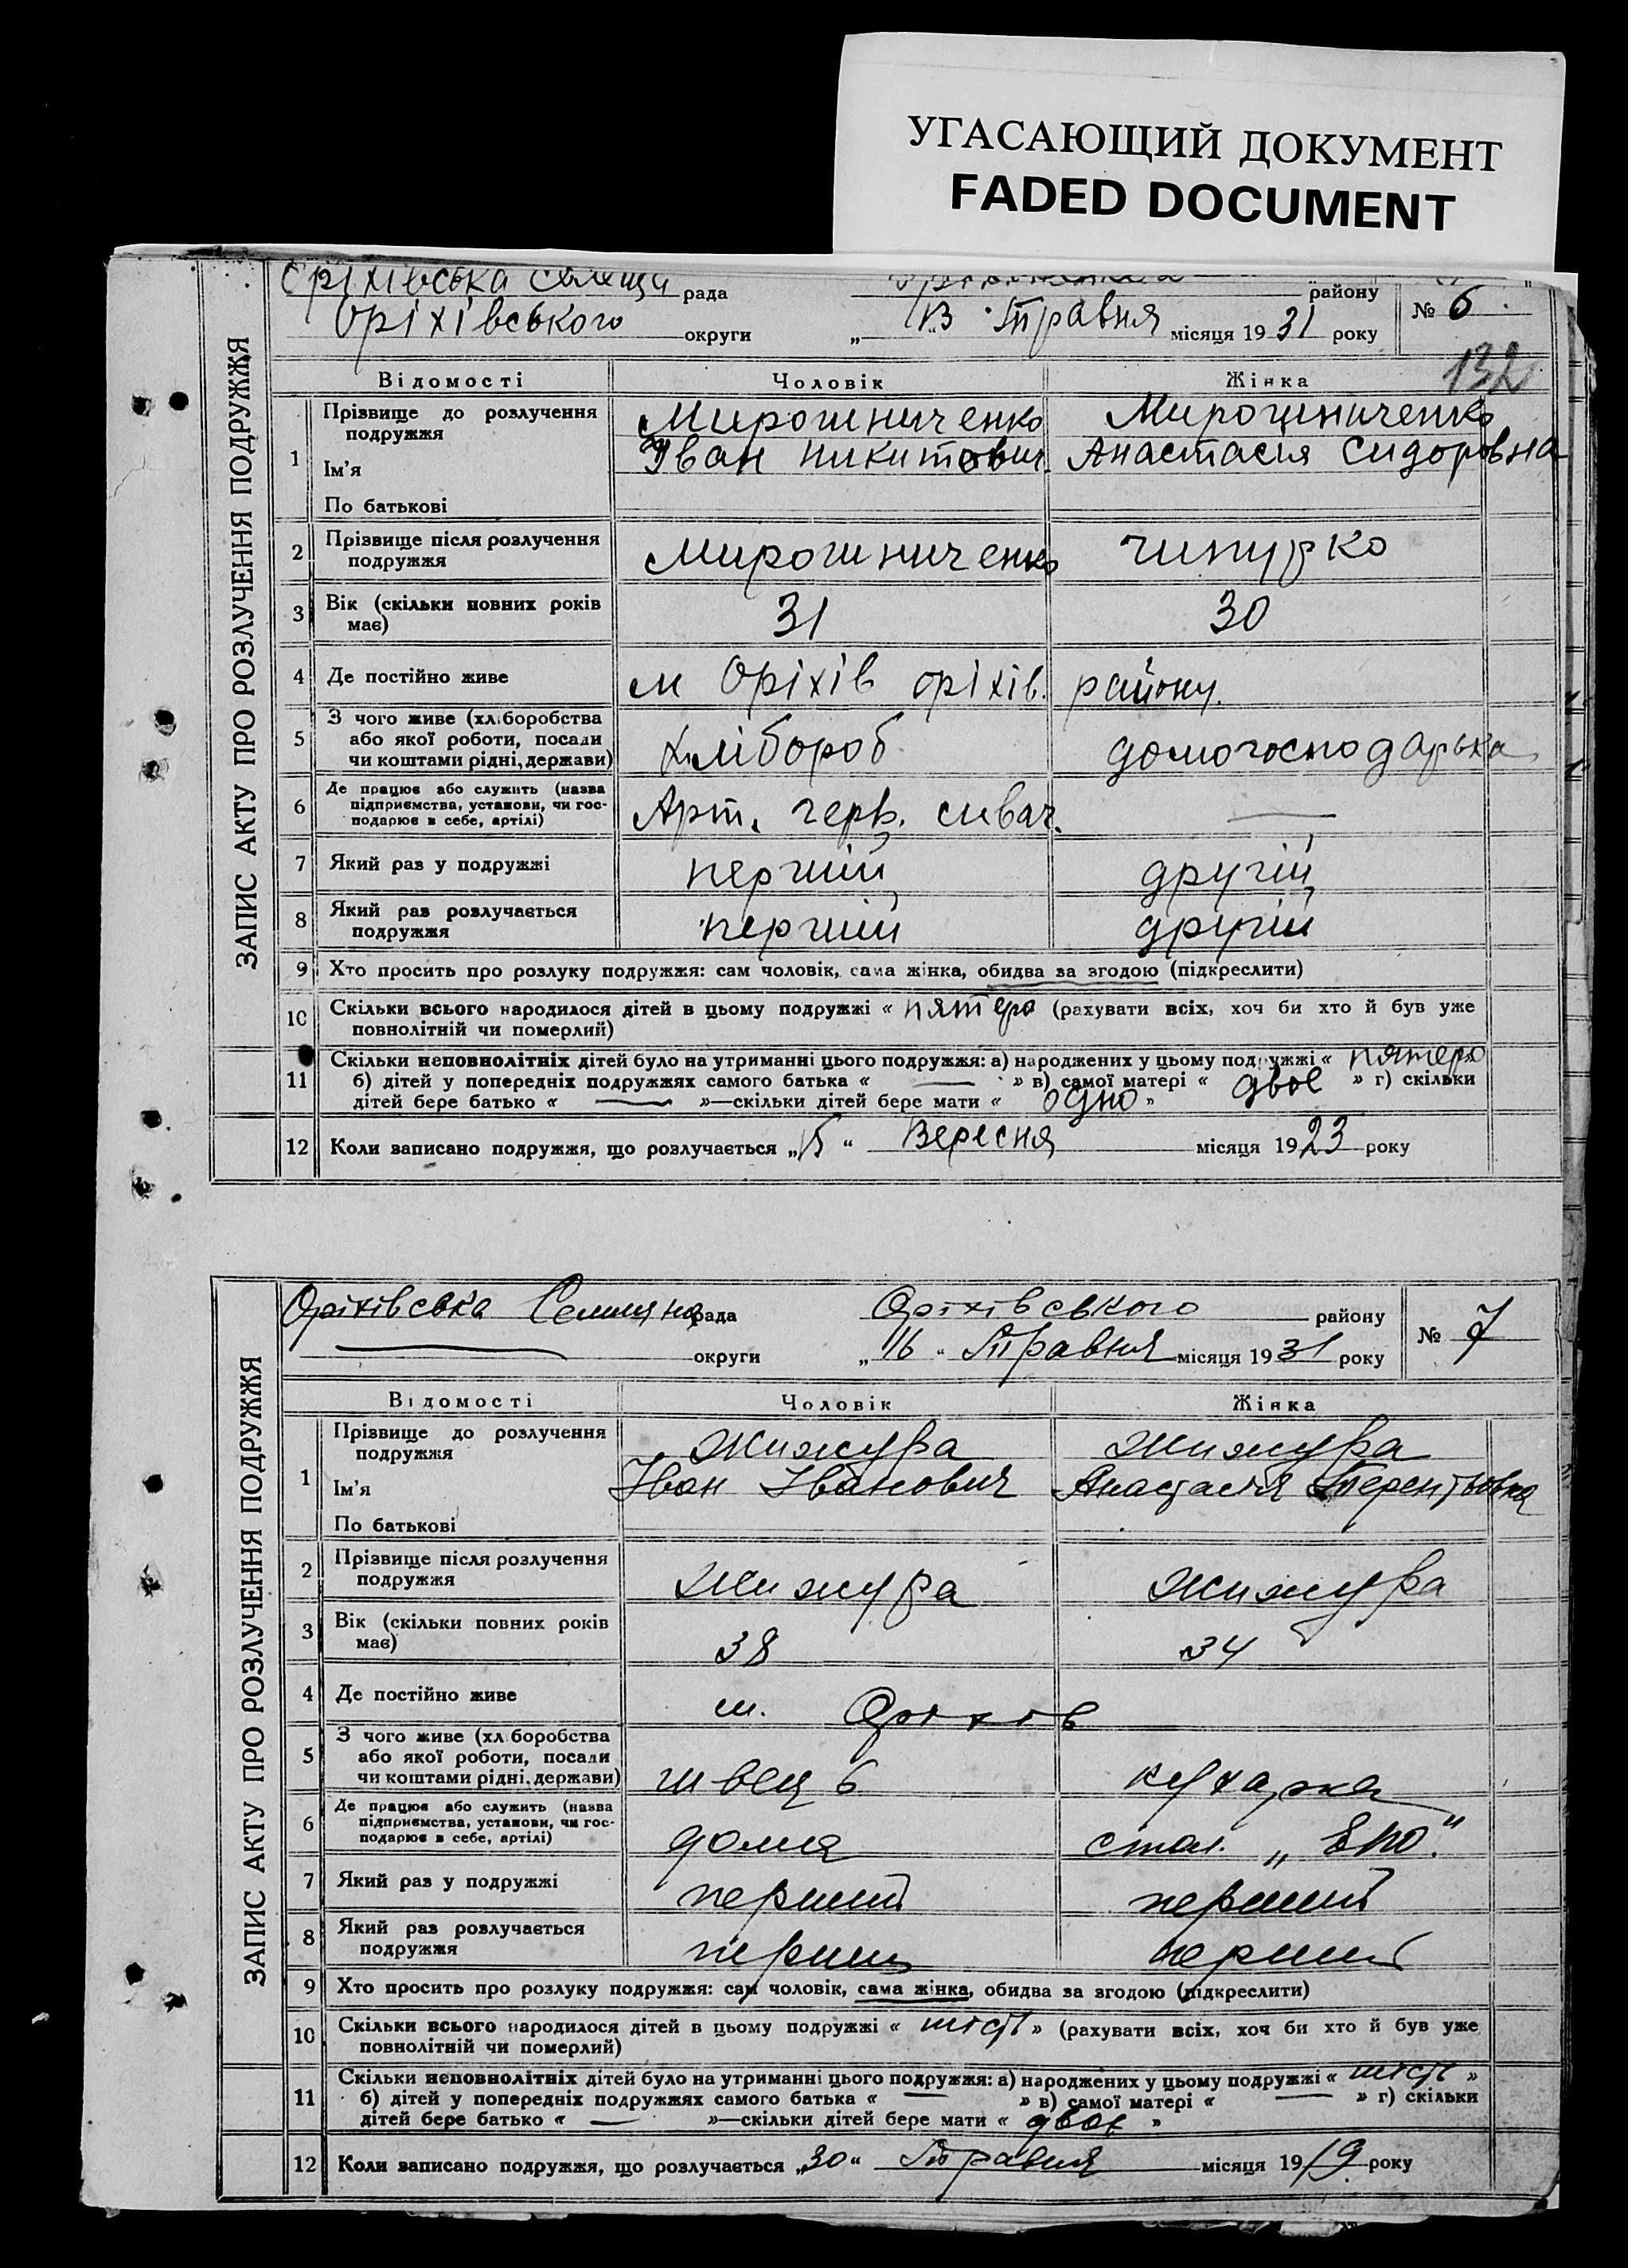 УГАСАЮЩИЙ ДОКУМЕНТ
FADED DOCUMENT
ЗАПИС АКТУ ПРО РОЗЛУЧЕННЯ ПОДРУЖЖЯ
Оріхівська рада району № 6
Оріхівського округи „ 13 “ Травня місяця 1931 року
132
Відомості Чоловік Жінка
1 Прізвище до розлучення подружжя Мирошниченко Мирошниченко
Ім'я Іван Никитович Анастасія Сидоровна
По батькові
2 Прізвище після розлучення подружжя Мирошниченко Чипурко
3 Вік (скільки повних років має) 31 30
4 Де постійно живе м Оріхів оріхів. району.
5 З чого живе (хліборобства
або якої роботи, посади
чи коштами рідні, держави) хлібороб домогосподарька
6 Де працює або служить (назва
підприємства, установи, чи гос-
подарює в себе, артілі) Арт. черв. сивач. —
7 Який раз у подружжі перший другій
8 Який раз розлучається подружжя перший другій
9 Хто просить про розлуку подружжя: сам чоловік, сама жінка, обидва за згодою (підкреслити)
10 Скільки всього народилося дітей в цьому подружжі « пятеро (рахувати всіх, хоч би хто й був уже
повнолітній чи померлий)
11 Скільки неповнолітніх дітей було на утриманні цього подружжя: а) народжених у цьому подружжі « пятеро
б) дітей у попередніх подружжях самого батька « — » в) самої матері « двоє » г) скільки
дітей бере батько « — »—скільки дітей бере мати « одно »
12 Коли записано подружжя, що розлучається „15“ Вересня місяця 1923 року
ЗАПИС АКТУ ПРО РОЗЛУЧЕННЯ ПОДРУЖЖЯ
Оріхівська Селищна рада Оріхівського району № 7
— округи „ 16 “ Травня місяця 1931 року
Відомості Чоловік Жінка
1 Прізвище до розлучення подружжя Жижура Жижура
Ім'я Іван Іванович Анастасія Терентьовна
По батькові
2 Прізвище після розлучення подружжя Жижура Жижура
3 Вік (скільки повних років має) 38 34
4 Де постійно живе м. Оріхів
5 З чого живе (хліборобства
або якої роботи, посади
чи коштами рідні, держави) швець кухарка
6 Де працює або служить (назва
підприємства, установи, чи гос-
подарює в себе, артілі) дома стол. „ЕПО.“
7 Який раз у подружжі перший перший
8 Який раз розлучається подружжя перший перший
9 Хто просить про розлуку подружжя: сам чоловік, сама жінка, обидва за згодою (підкреслити)
10 Скільки всього народилося дітей в цьому подружжі « шість » (рахувати всіх, хоч би хто й був уже
повнолітній чи померлий)
11 Скільки неповнолітніх дітей було на утриманні цього подружжя: а) народжених у цьому подружжі « шість »
б) дітей у попередніх подружжях самого батька « — » в) самої матері « — » г) скільки
дітей бере батько « — »—скільки дітей бере мати « двоє »
12 Коли записано подружжя, що розлучається „30“ Травня місяця 1919 року